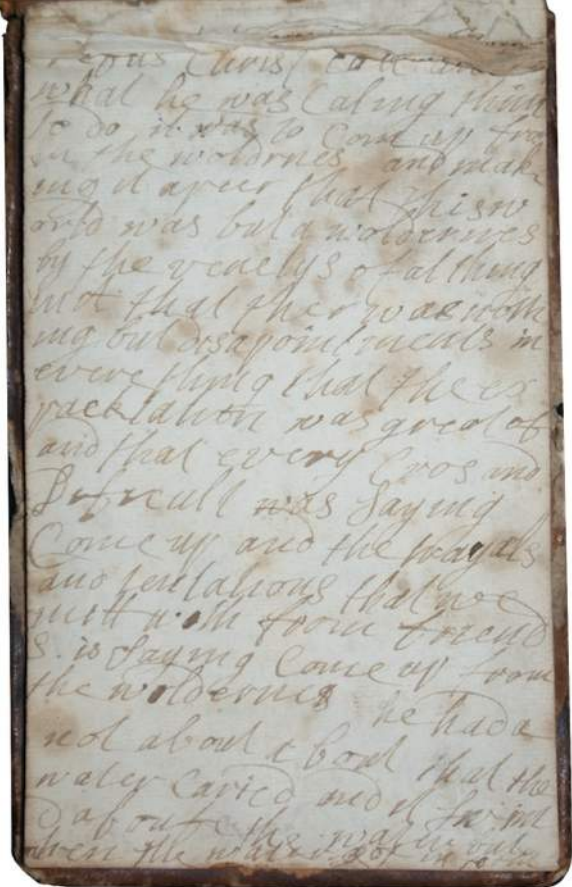 what he was Caling thim
to do it was to Com up from
in the woldrnes and mak
ing it apeer that this w
orld was but a woldernnes
by the of al thing
not that ther was noth
ing but disapointments in
evere thing that the ex
packtation was great of
and that every Cros and
Dificull was Saying
Come up and the
and tentations that we
mitt with from friend
s is Saying Come up from
the woldernis he had a
not about a boat that the
water caried and it swim
d about the water but
when the water got in